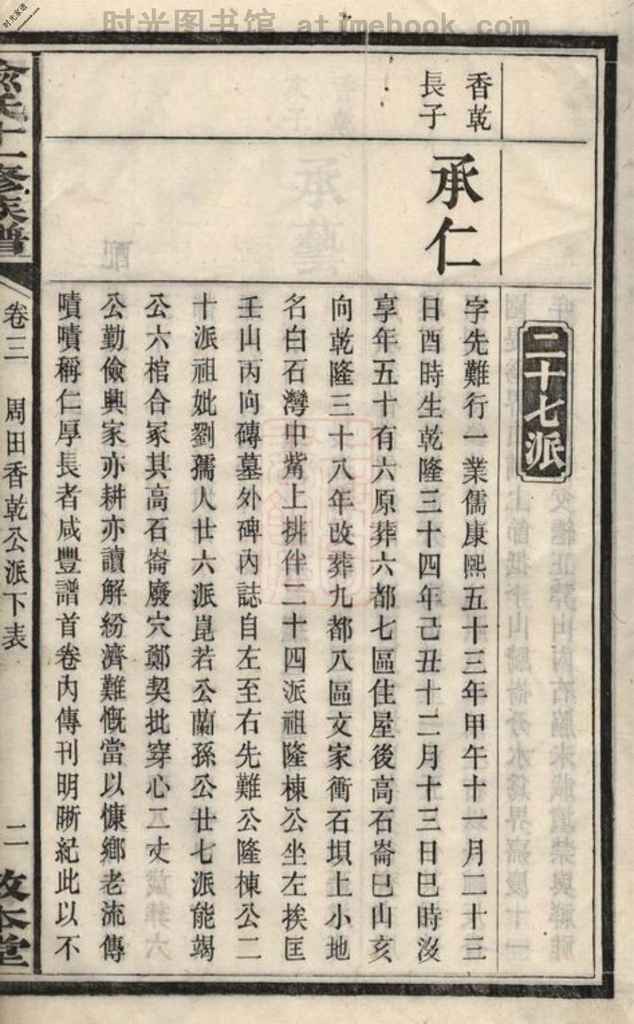 时光图书馆 atimebook.com
时光家谱
二十七派
香乾
長子
承仁
字先難行一業儒康熙五十三年甲午十一月二十三
日酉時生乾隆三十四年己丑十二月十三日巳時沒
享年五十有六原葬六都七區住屋後高石崙巳山亥
向乾隆三十八年改葬九都八區文家衝石垻上小地
名白石灣中觜上排伴二十四派祖隆棟公坐左挨匡
壬山丙向磚墓外碑內誌自左至右先難公隆棟公二
十派祖妣劉孺人廿六派崑若公蘭孫公廿七派能竭
公六棺合冢其高石崙廢穴鄭契批穿心二丈
公勤儉興家亦耕亦讀解紛濟難慨當以慷鄉老流傳
嘖嘖稱仁厚長者咸豐譜首卷內傳刊明晰紀此以不
氏十一修族譜
卷三
周田香乾公派下表
二
本堂